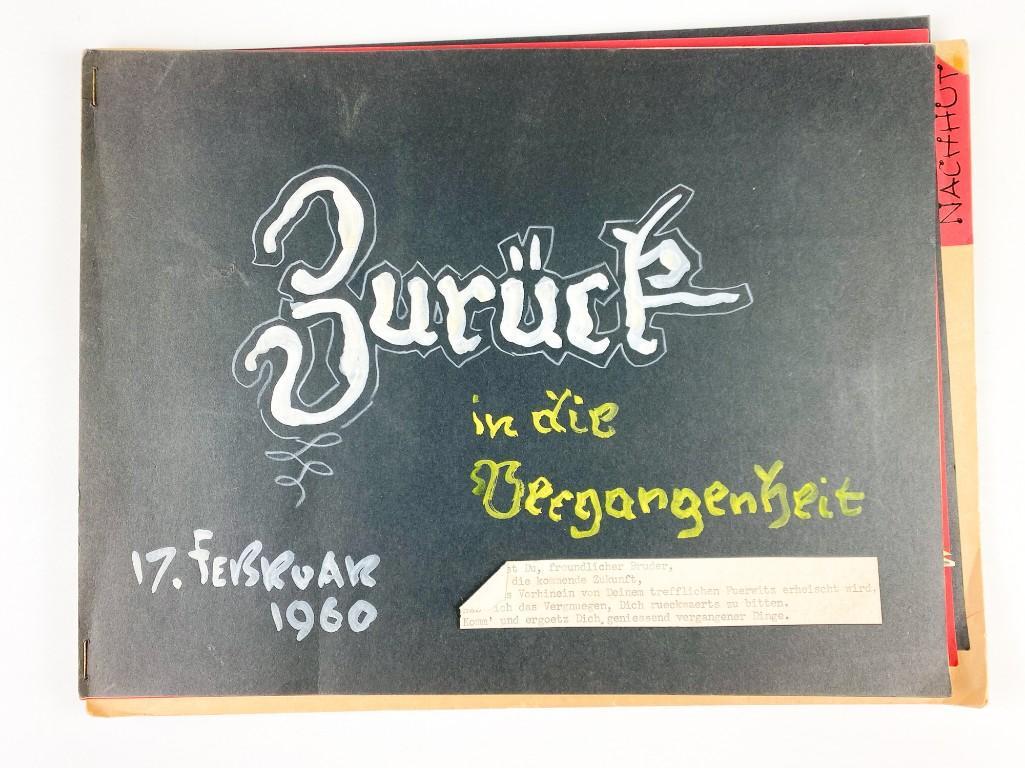 Zurück
in die
Vergangenheit
17. FEBRUAR
1960
st Du, freundlicher Bruder,
die kommende Zukunft,
s Vorhinein von Deinem trefflichen Fuerwitz erheischt wird,
ich das Vergnuegen, Dich rueckwaerts zu bitten.
Komm' und ergoetz Dich, geniessend vergangener Dinge.
NACHHUT